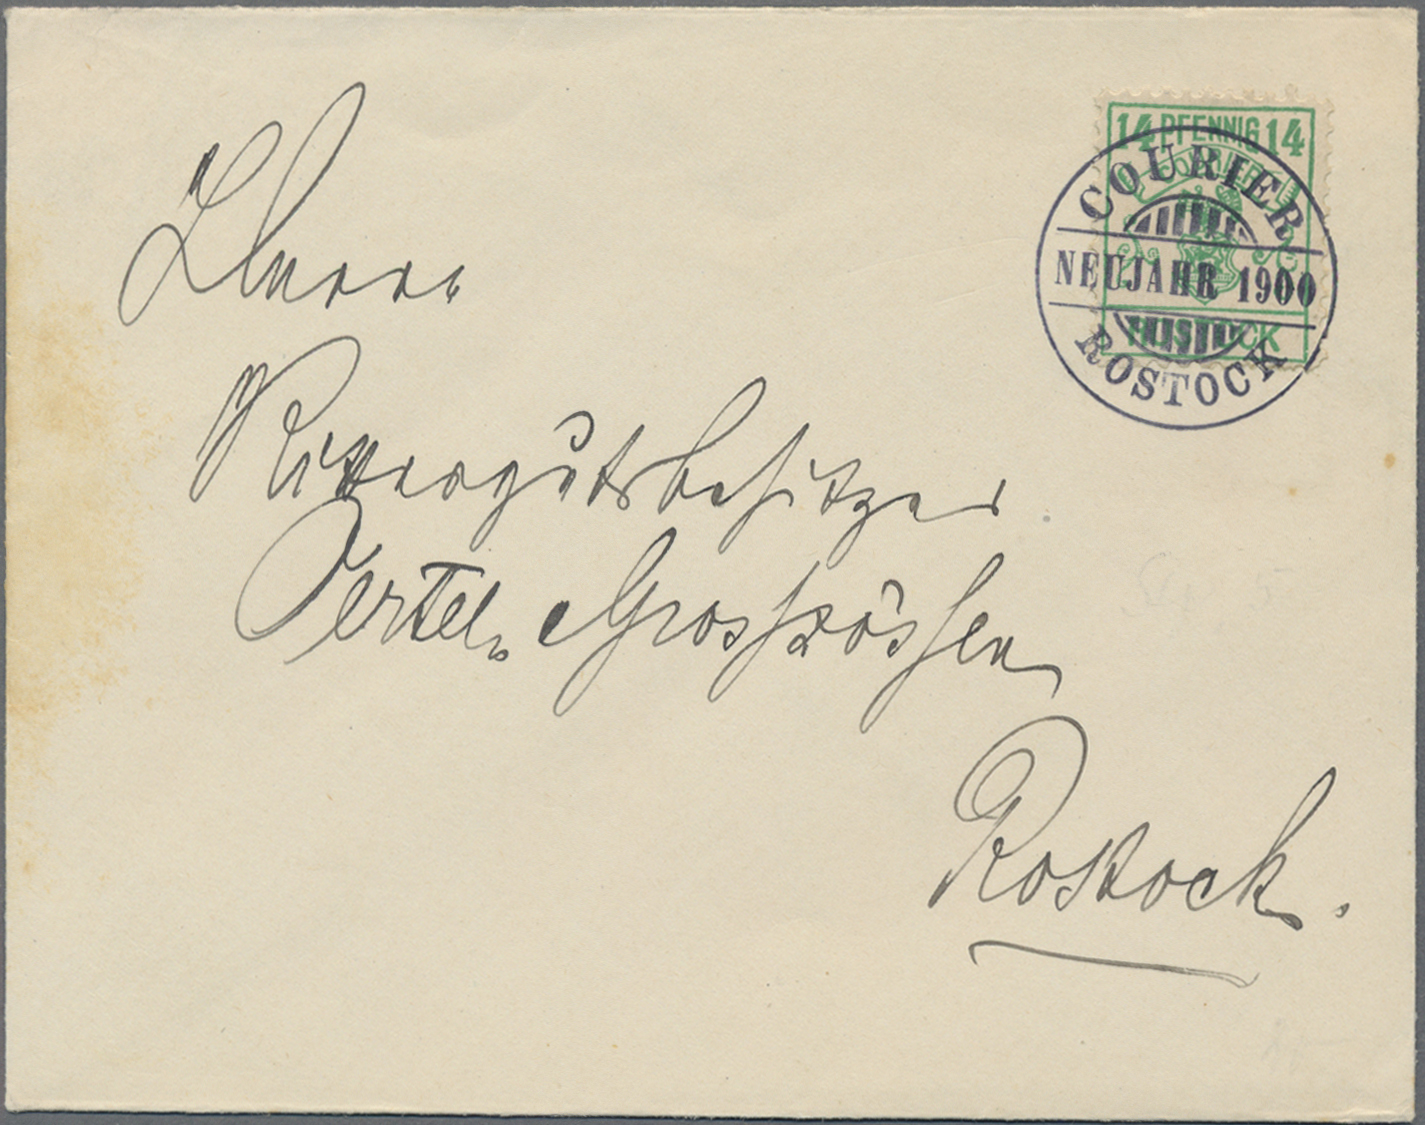 14 PFENNIG 14
COURIER
COURIER
NEUJAHR 1900
ROSTOCK
ROSTOCK
Herrn
Rittergutsbesitzer
Oertel. Grosszössen
Rostock.